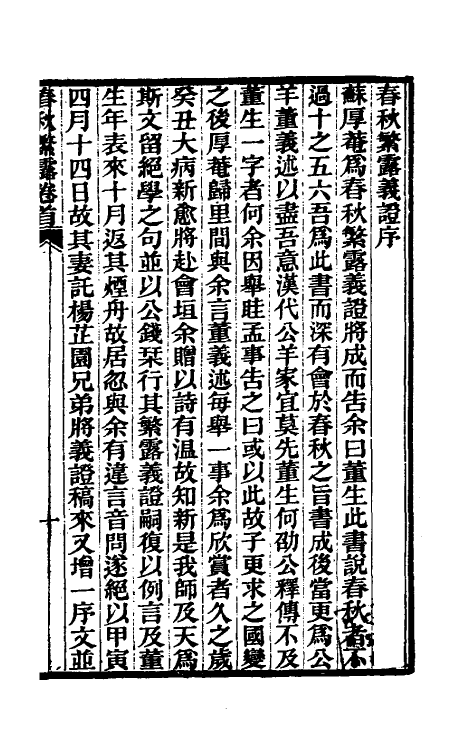 春秋繁露義證序
蘇厚菴爲春秋繁露義證將成而告余曰董生此書說春秋者不
過十之五六吾爲此書而深有會於春秋之旨書成後當更爲公
羊董義述以盡吾意漢代公羊家宜莫先董生何劭公釋傳不及
董生一字者何余因舉眭孟事告之曰或以此故子更求之國變
之後厚菴歸里閒與余言董義述每舉一事余爲欣賞者久之歲
癸丑大病新愈將赴會垣余贈以詩有温故知新是我師及天爲
斯文留絕學之句並以公錢栞行其繁露義證嗣復以例言及董
生年表來十月返其煙舟故居忽與余有違言音問遂絕以甲寅
四月十四日故其妻託楊芷園兄弟將義證稿來又增一序文並
春秋繁露卷首
十